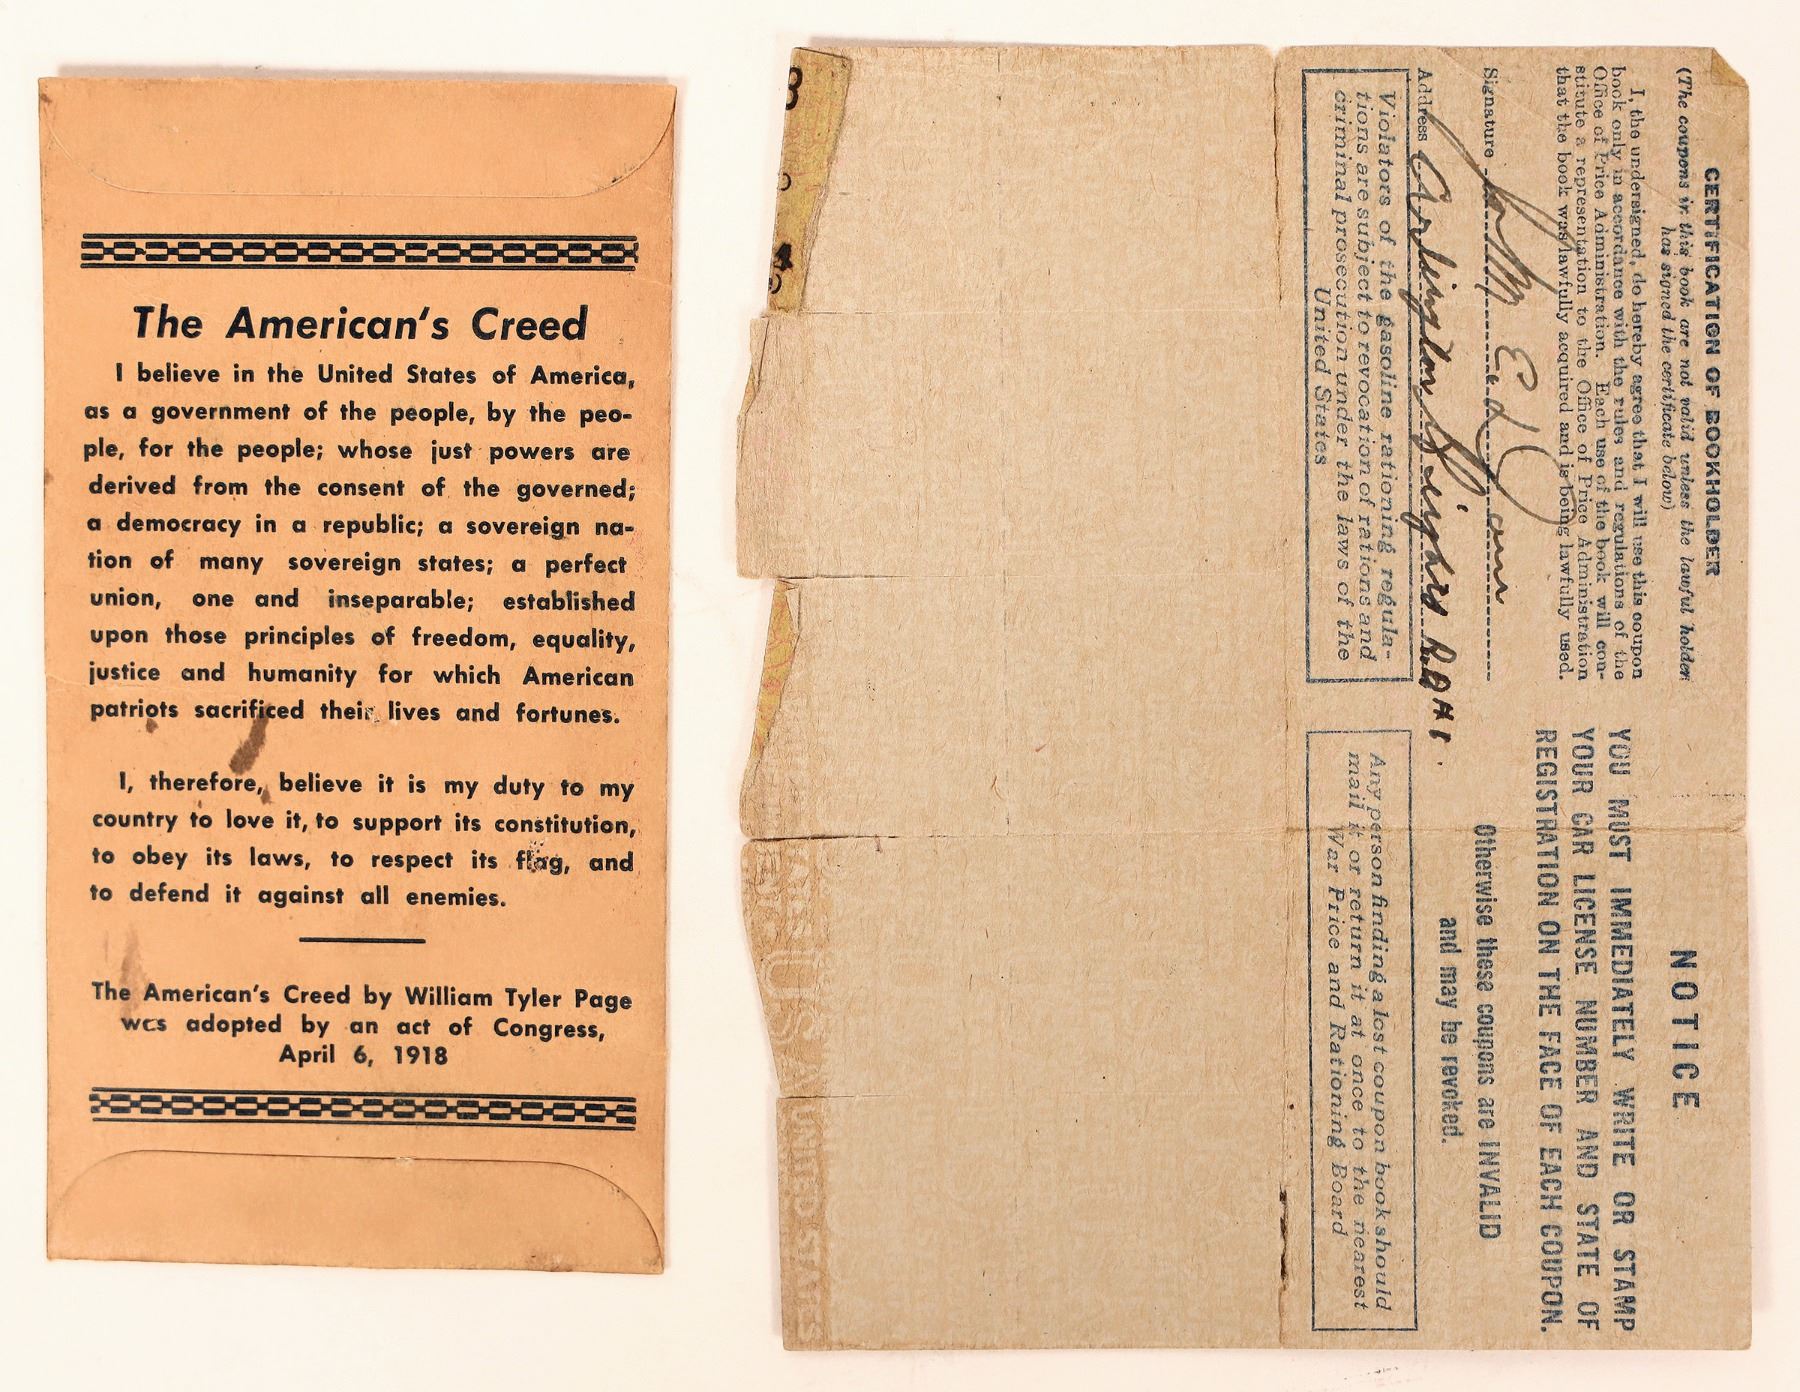 The American's Creed
I believe in the United States of America,
as a government of the people, by the peo-
ple, for the people; whose just powers are
derived from the consent of the governed;
a democracy in a republic; a sovereign na-
tion of many sovereign states; a perfect
union, one and inseparable; established
upon those principles of freedom, equality,
justice and humanity for which American
patriots sacrificed their lives and fortunes.
I, therefore, believe it is my duty to my
country to love it, to support its constitution,
to obey its laws, to respect its flag, and
to defend it against all enemies.
The American's Creed by William Tyler Page
was adopted by an act of Congress,
April 6, 1918
CERTIFICATION OF BOOKHOLDER
(The coupons in this book are not valid unless the lawful holder
has signed the certificate below)
I, the undersigned, do hereby agree that I will use this coupon
book only in accordance with the rules and regulations of the
Office of Price Administration. Each use of the book will con-
stitute a representation to the Office of Price Administration
that the book was lawfully acquired and is being lawfully used.
Signature
Address Arlington
Violators of the gasoline rationing regula-
tions are subject to revocation of rations and
criminal prosecution under the laws of the
United States
NOTICE
YOU MUST IMMEDIATELY WRITE OR STAMP
YOUR CAR LICENSE NUMBER AND STATE OF
REGISTRATION ON THE FACE OF EACH COUPON.
Otherwise these coupons are INVALID
and may be revoked.
Any person finding a lost coupon book should
mail it or return it at once to the nearest
War Price and Rationing Board
UNITED STATES